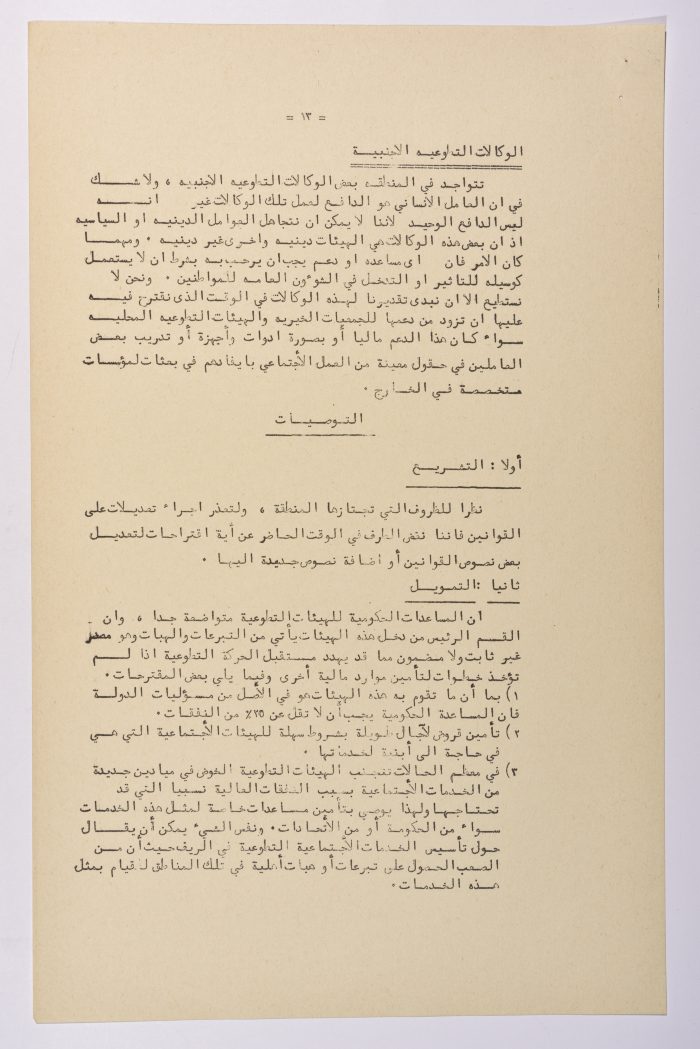 = ١٣ =
الوكالات التطوعيه الاجنبية
تتواجد في المنطقه بعض الوكالات التطوعيه الاجنبيه ، ولا شك
في ان العامل الانساني هو الدافع لعمل تلك الوكالات غير انه
ليس الدافع الوحيد لاننا لا يمكن ان نتجاهل العوامل الدينيه او السياسيه
اذ ان بعض هذه الوكالات هي الهيئات دينيه واخرى غير دينيه . ومهما
كان الامر فان اى مساعده او دعم يجب ان يرحب به بشرط ان لا يستعمل
كوسيله للتاثير او التدخل في الشوءون العامه للمواطنين . ونحن لا
نستطيع الا ان نبدى تقديرنا لهذه الوكالات في الوقت الذى نقترح فيه
عليها ان تزود من دعمها للجمعيات الخيريه والهيئات التطوعيه المحليه
سواء كان هذا الدعم ماليا أو بصورة ادوات وأجهزة أو تدريب بعض
العاملين في حقول معينة من العمل الأجتماعي بايفادهم في بعثات لمؤسسات
متخصصة في الخارج .
التوصيات
أولا : التشريع
نظرا للظروف التي تجتازها المنطقة ، ولتعذر اجراء تعديلات على
القوانين فاننا نغض الطرف في الوقت الحاضر عن أية اقتراحات لتعديل
بعض نصوص القوانين أو اضافة نصوص جديدة اليها .
ثانيا : التمويل
ان المساعدات الحكومية للهيئات التطوعية متواضعة جدا ، وان
القسم الرئيس من دخل هذه الهيئات يأتي من التبرعات والهبات وهو مصدر
غير ثابت ولا مضمون مما قد يهدد مستقبل الحركة التطوعية اذا لم
تؤخذ خطوات لتأمين موارد مالية أخرى وفيما يلي بعض المقترحات.
١) بما أن ما تقوم به هذه الهيئات هو في الأصل من مسؤليات الدولة
فان المساعدة الحكومية يجب أن لا تقل عن ٢٥٪ من النفقات.
٢) تأمين قروض لآجال طويلة بشروط سهلة للهيئات الأجتماعية التي هي
في حاجة الى أبنية لخدماتها .
٣) في معظم الحالات تتجنب الهيئات التطوعية الخوض في ميادين جديدة
من الخدمات الأجتماعية بسبب النفقات العالية نسبيا التي قد
تحتاجها ولهذا يوصى بتأمين مساعدات خاصة لمثل هذه الخدمات
سواء من الحكومة أو من الأتحادات. ونفس الشيء يمكن أن يقال
حول تأسيس الخدمات الأجتماعية التطوعية في الريف حيث أن من
الصعب الحصول على تبرعات أو هبات أهلية في تلك المناطق للقيام بمثل
هذه الخدمات.